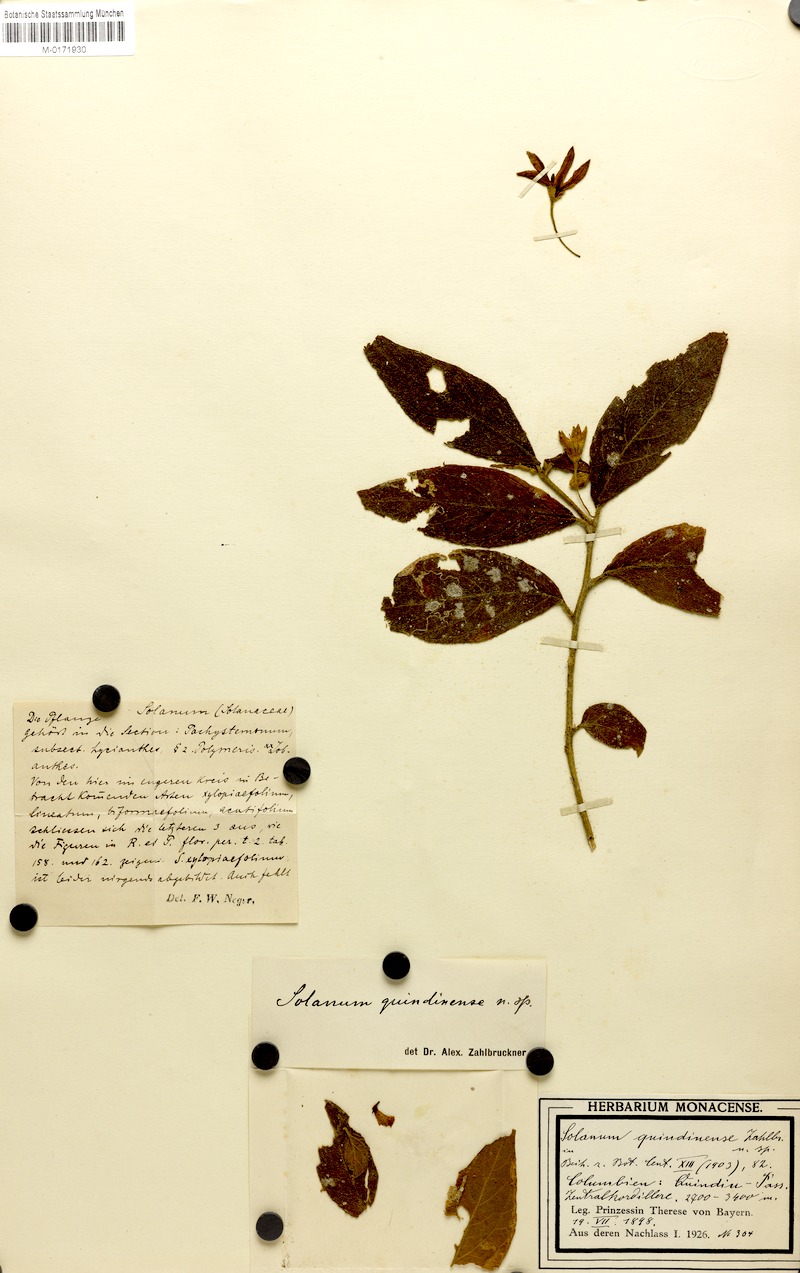 Botanische Staatssammlung München
M-0171930
Die Pflanze Solanum (Solanaceae)
gehört in die Section: Pachystemonum,
subsect. Lycianthes. § 2 Polymeris.
anthes.
Von den hier im engeren Kreis in Be-
tracht kom̅enden Arten xylopiaefolium,
lineatum, biformefolium, acutifolium
schliessen sich die letzteren 3 aus, wie
die Figuren in R. et P. flor. per. t. 2. tab.
158. und 162. zeigen. S. xylopiaefolium
ist leider nirgends abgebildet. Auch fehlt
Det. F. W. Neger.
Solanum quindinense n. sp.
det Dr. Alex. Zahlbruckner
HERBARIUM MONACENSE.
Solanum quindinense Zahlbr.
in n. sp.
Beih. z. Bot. Cent. XIII (1903), 82.
Columbien: Quindiu-Pass.
Zentralkordillere. 2900-3400 m.
Leg. Prinzessin Therese von Bayern.
19. VII. 1898.
Aus deren Nachlass I. 1926. № 304